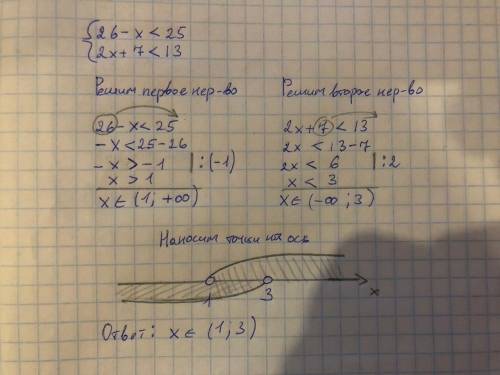 {26-x<25
{2x+7<13
Решим первое нер-во
26-x<25
-x<25-26
-x>-1 |:(-1)
x>1
x∈(1;+∞)
Решим второе нер-во
2x+7<13
2x<13-7
2x<6 |:2
x<3
x∈(-∞;3)
Наносим точки на ось
1 3 x
Ответ: x∈(1;3)